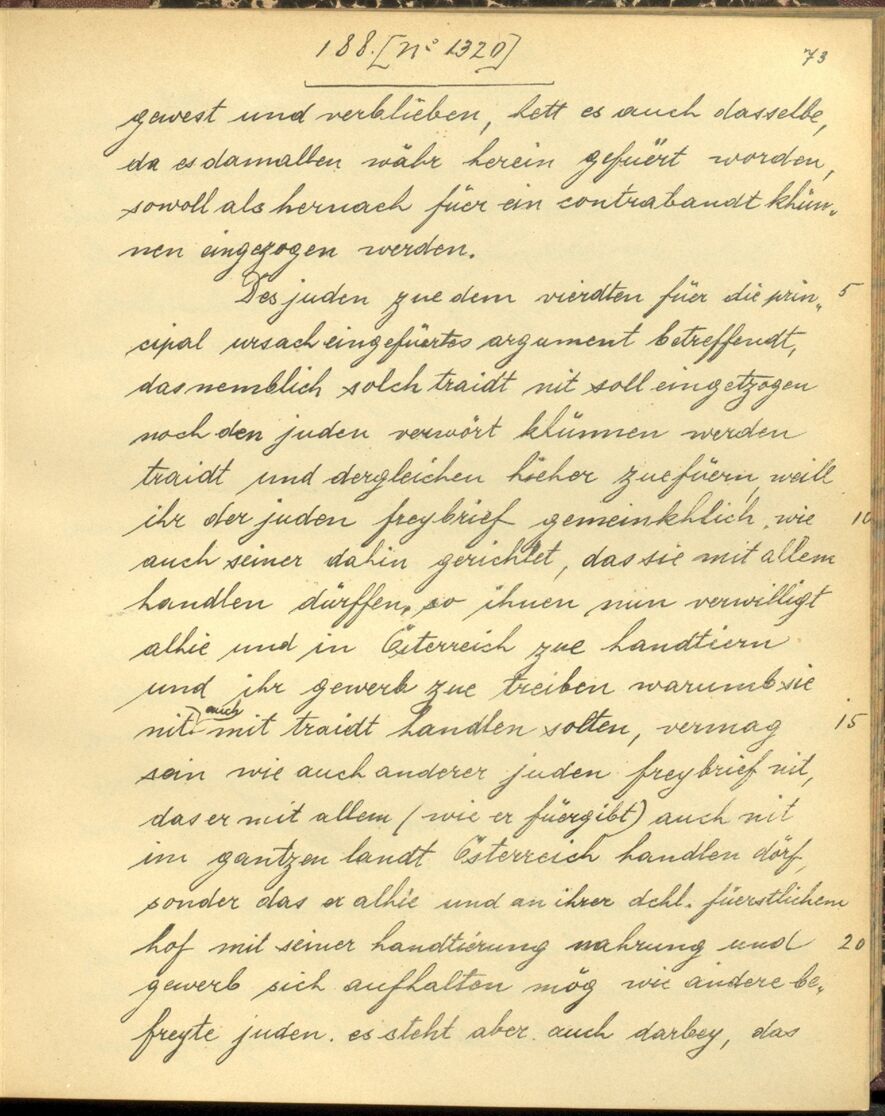 188. [No 1320]
73
gewest und verblieben, hett es auch dasselbe,
da es damallen währ herein gefüert worden,
sowoll als hernach füer ein contrabandt khün„
nen eingezogen werden.
Des juden zue dem vierdten füer die prin„ 5
cipal ursach eingefüertes argument betreffendt,
das nemblich solch traidt nit soll eingetzogen
noch den juden verwört khünnen werden
traidt und dergleichen hieher zuefüern, weill
ihr der juden freybrief gemeinkhlich, wie 10
auch seiner dahin gerichtet, das sie mit allem
handlen dürffen, so ihnen nun verwilligt
alhie und in Österreich zue handtiern
und ihr gewerb zue treiben warumb sie
nit auch mit traidt handlen solten, vermag 15
sein wie auch anderer juden freybrief nit,
das er mit allem (wie er füergibt) auch nit
im gantzen landt Österreich handlen dörf,
sonder das er alhie und an ihrer dchl. füerstlichem
hof mit seiner handtierung nahrung und 20
gewerb sich aufhalten mög wie andere be„
freyte juden. es steht aber auch darbey, das